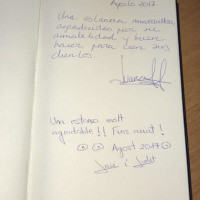 Agosto 2017
Una estancia maravillosa
agradecidos por su
amabilidad y buen
hacer para con sus
clientes.
Una estança molt
agradable!! Fins aviat!
Agost 2017
i Judit